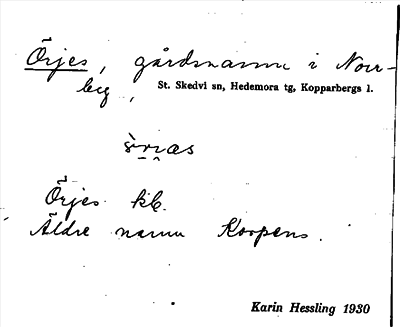 Örjes, gårdsnamn i Norr-
by,
St. Skedvi sn, Hedemora tg, Kopparbergs l.
Örjes kb.
Äldre namn Korpens.
Karin Hessling 1930